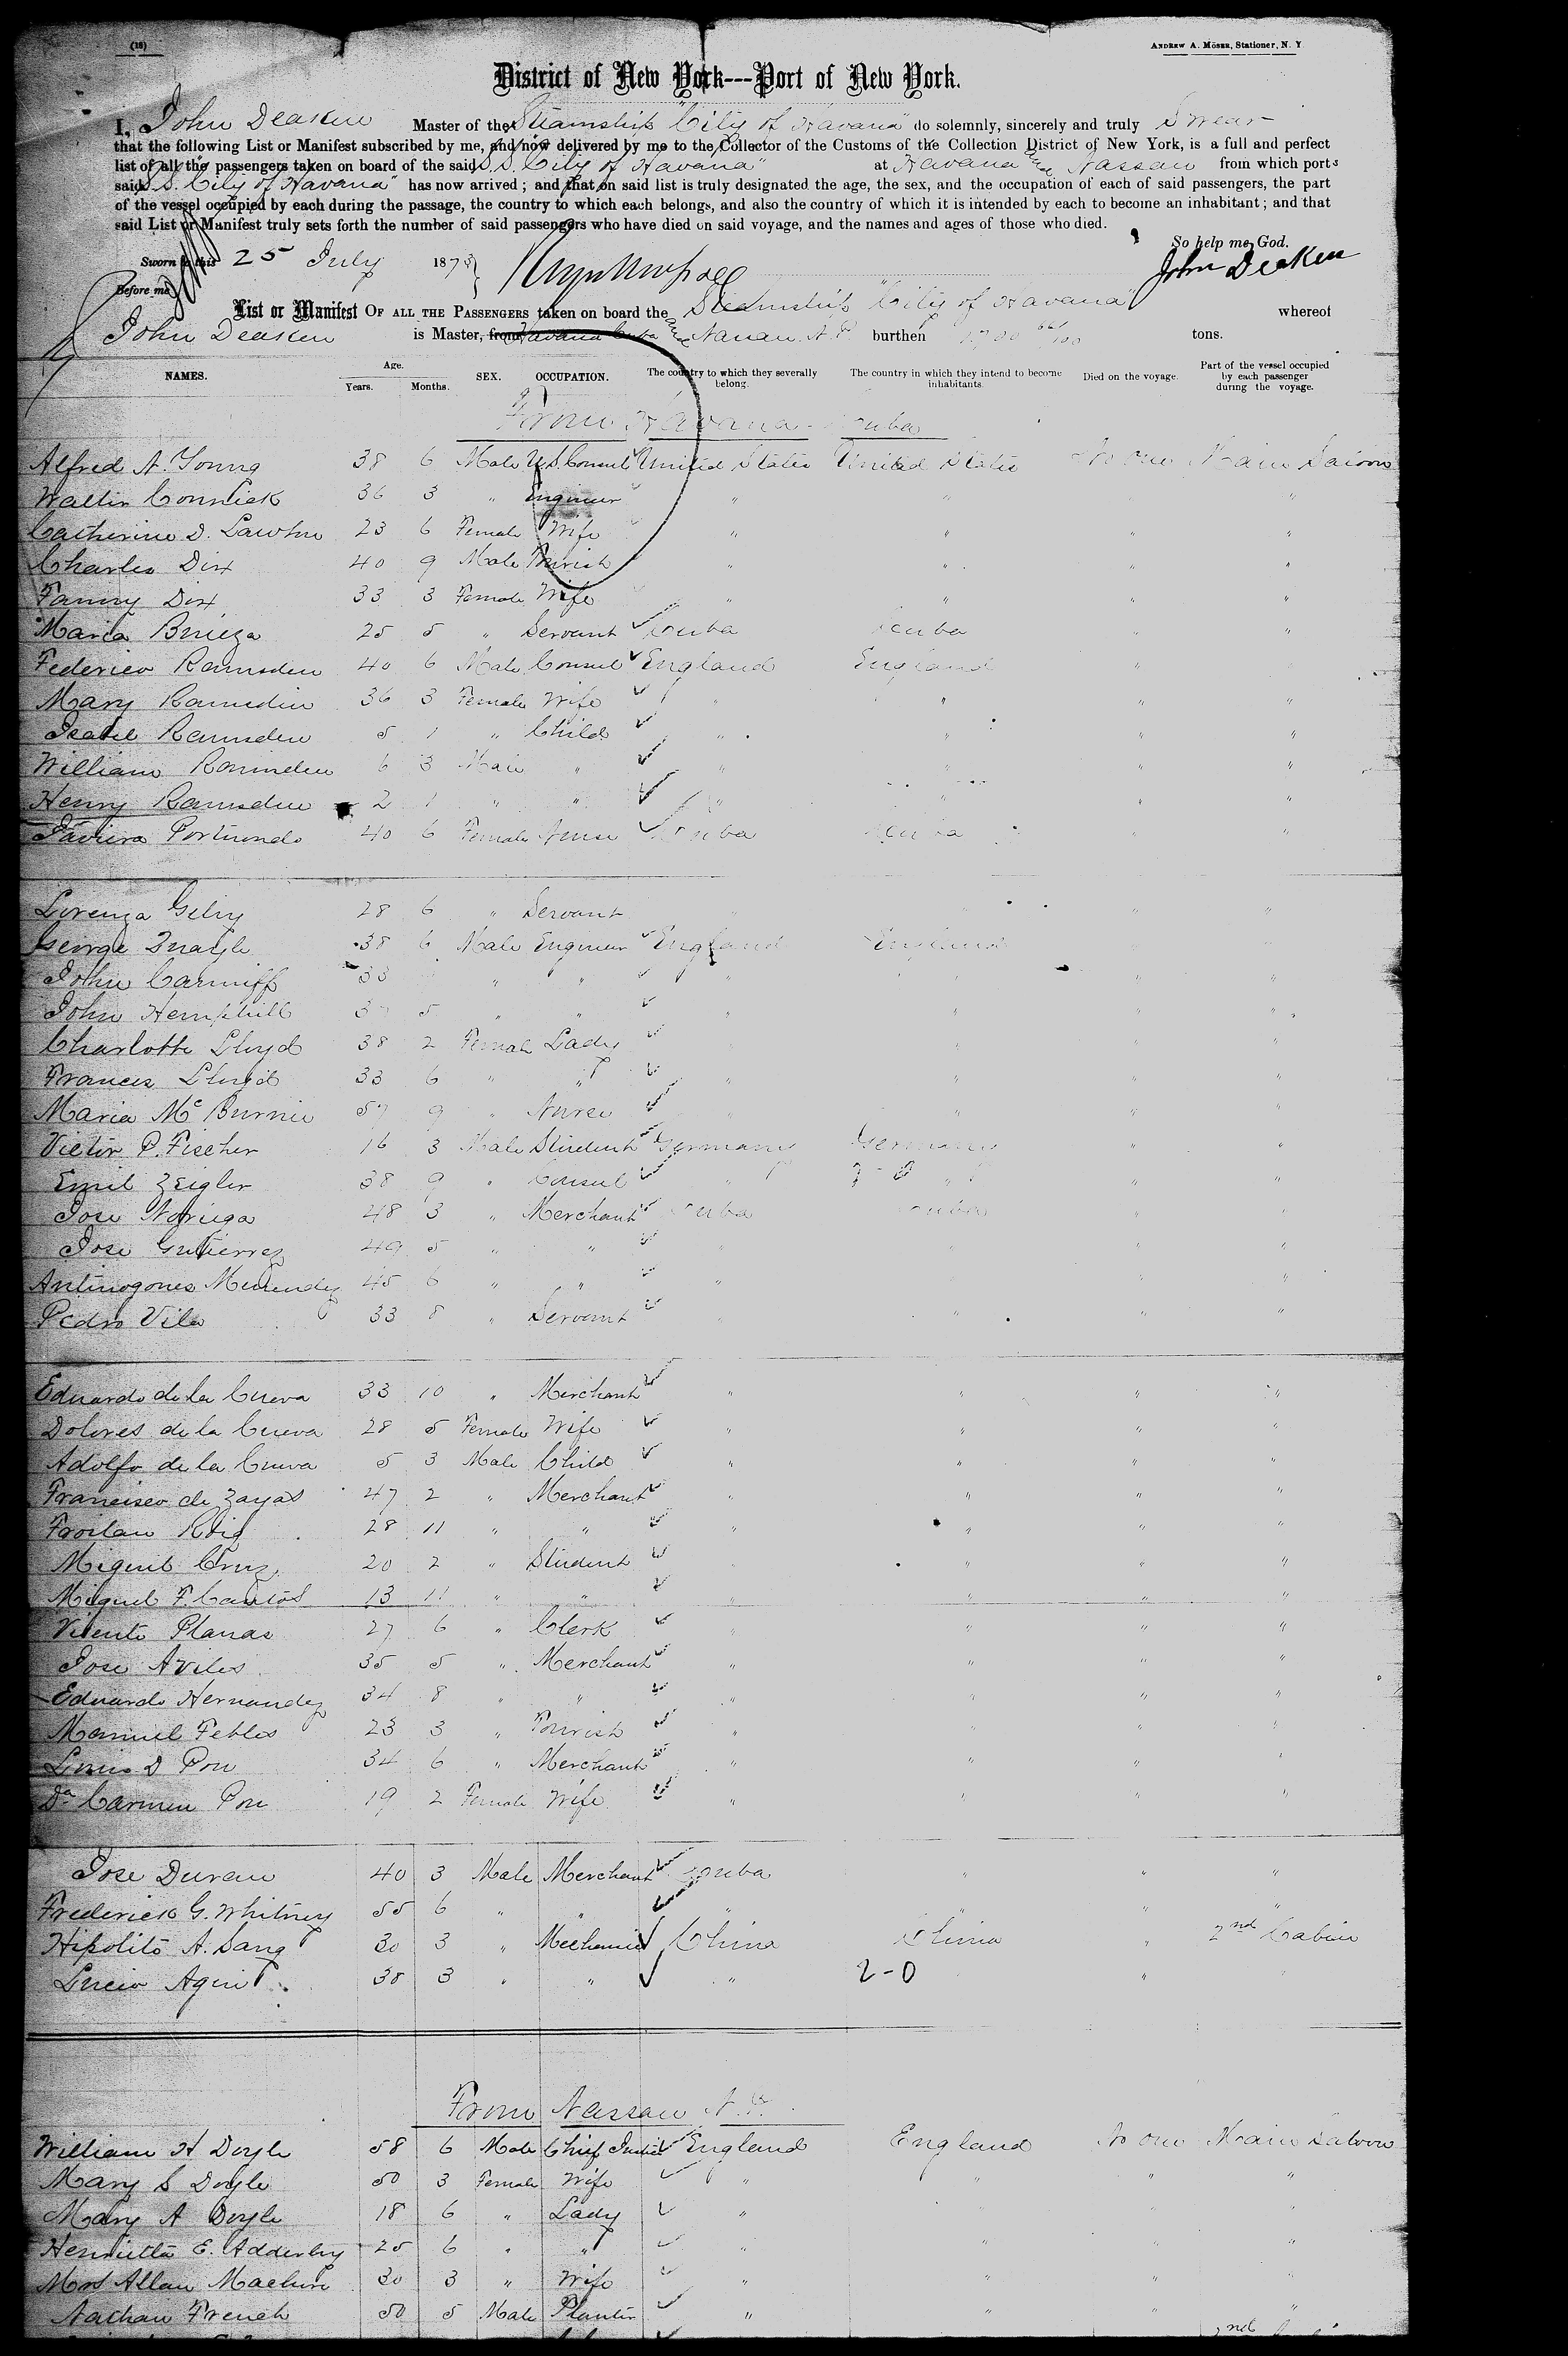 (18)
ANDREW A. MOSER, Stationer, N. Y.
District of New York---Port of New York.
I, John Deaken Master of the Steamship "City of Havana" do solemnly, sincerely and truly Swear
that the following List or Manifest subscribed by me, and now delivered by me to the Collector of the Customs of the Collection District of New York, is a full and perfect
list of all the passengers taken on board of the said S.S. "City of Havana" at Havana and Nassau from which ports
said S.S. "City of Havana" has now arrived; and that on said list is truly designated the age, the sex, and the occupation of each of said passengers, the part
of the vessel occupied by each during the passage, the country to which each belongs, and also the country of which it is intended by each to become an inhabitant; and that
said List or Manifest truly sets forth the number of said passengers who have died on said voyage, and the names and ages of those who died.
So help me God.
Sworn to this 25 July 187 John Deaken
Before me
List or Manifest OF ALL THE PASSENGERS taken on board the Steamship "City of Havana" whereof
John Deaken is Master, from Havana Cuba and Nassau N.P. burthen tons.
NAMES. Age. Years. Months. SEX. OCCUPATION. The country to which they severally belong. The country in which they intend to become inhabitants. Died on the voyage. Part of the vessel occupied by each passenger during the voyage.
From Havana - Cuba
Alfred N. Young 38 6 Male U.S. Consul United States United States No one Main Saloon
Walter Connick 36 3 " Engineer " " "
Catherine D. Lawton 23 6 Female Wife " " " "
Charles Dix 40 9 Male Tourist " " " "
Fanny Dix 33 3 Female Wife " " " "
Maria Brieza 25 5 " Servant Cuba Cuba " "
Federico Ramsden 40 6 Male Consul England England " "
Mary Ramsden 36 3 Female Wife " " " "
Isabel Ramsden 5 1 " Child " " " "
William Ramsden 6 3 Male " " " " "
Henry Ramsden 2 1 " " " " " "
Javiera Portuondo 40 6 Female Nurse Cuba Cuba " "
Lorenza 28 6 " Servant " " "
George 38 6 Male Engineer England England "
John Canniff 33 " " " " "
John Hemphill 3 5 " " " " " "
Charlotte Lloyd 38 2 Female Lady " " "
Frances Lloyd 33 6 " " " " " "
Maria Mc Burnie 57 9 " Nurse " " " "
Victor P. Fischer 16 3 Male Student Germany Germany " "
Emil Zeigler 38 9 " Consul " " " "
Jose Noriega 48 3 " Merchant Cuba Cuba " "
Jose Gutierrez 49 5 " " " " "
Antinogones Menendez 45 6 " " " " "
Pedro Vila 33 8 " Servant " " " "
Eduardo de la Cueva 33 10 " Merchant " " " "
Dolores de la Cueva 28 5 Female Wife " " " "
Adolfo de la Cueva 5 3 Male Child " " " "
Francisco de Zayas 47 2 " Merchant " " " "
Froilan Roig 28 11 " " " " " "
Miguel Cruz 20 2 " Student " " "
Miguel F. Cantos 13 11 " " " " " "
Vicente Planas 27 6 " Clerk " " " "
Jose Aviles 35 5 " Merchant " " " "
Eduardo Hernandez 34 8 " " " " " "
Manuel Febles 23 3 " Tourist " " " "
Louis D Pou 34 6 " Merchant " " " "
Da Carmen Pou 19 2 Female Wife " " " "
Jose Duran 40 3 Male Merchant Cuba " " "
Frederick G. Whitney 55 6 " " " " " "
Hipolito A. Sang 30 3 " Mechanic China China " 2nd Cabin
Lucio 38 3 " " " 2-0 "
From Nassau N.P.
William H Doyle 58 6 Male Chief Justice England England No one Main Saloon
Mary S Doyle 50 3 Female Wife " " " "
Mary A Doyle 18 6 " Lady " " " "
Henrietta E. Adderley 25 6 " " " " " "
Mrs Allan 30 3 " Wife " " "
Nathan French 50 5 Male Planter " " " "
2nd